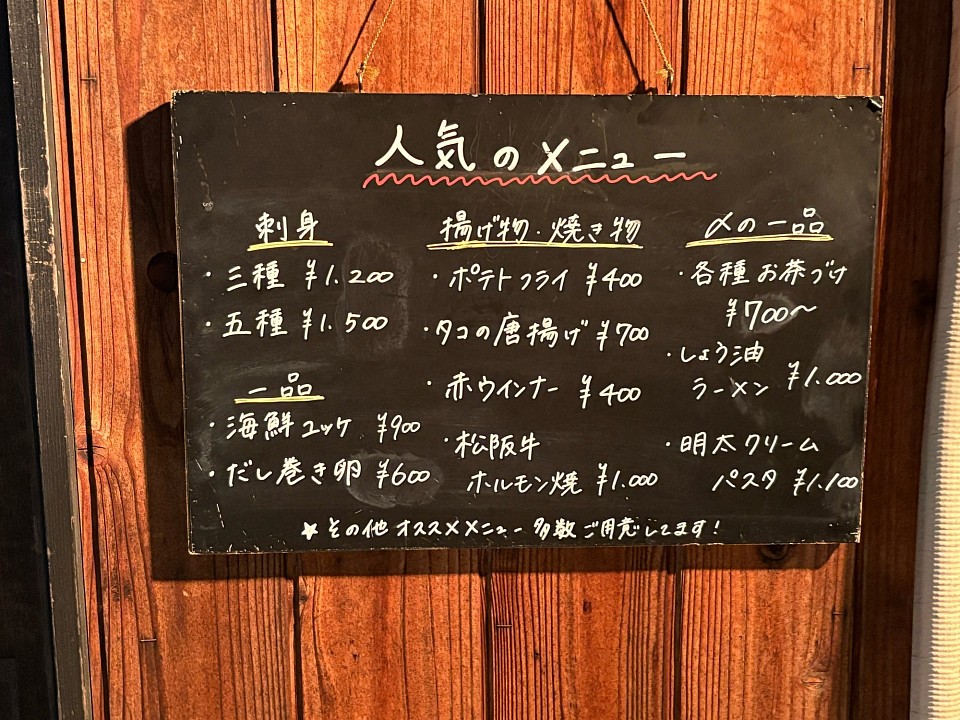 人気のメニュー
刺身
・三種 ¥1.200
・五種 ¥1.500
一品
・海鮮ユッケ ¥900
・だし巻き卵 ¥600
揚げ物・焼き物
・ポテトフライ ¥400
・タコの唐揚げ ¥700
・赤ウインナー ¥400
・松阪牛
ホルモン焼 ¥1.000
〆の一品
・各種お茶づけ
¥700〜
・しょう油
ラーメン ¥1.000
・明太クリーム
パスタ ¥1.100
★その他オススメメニュー多数ご用意してます!